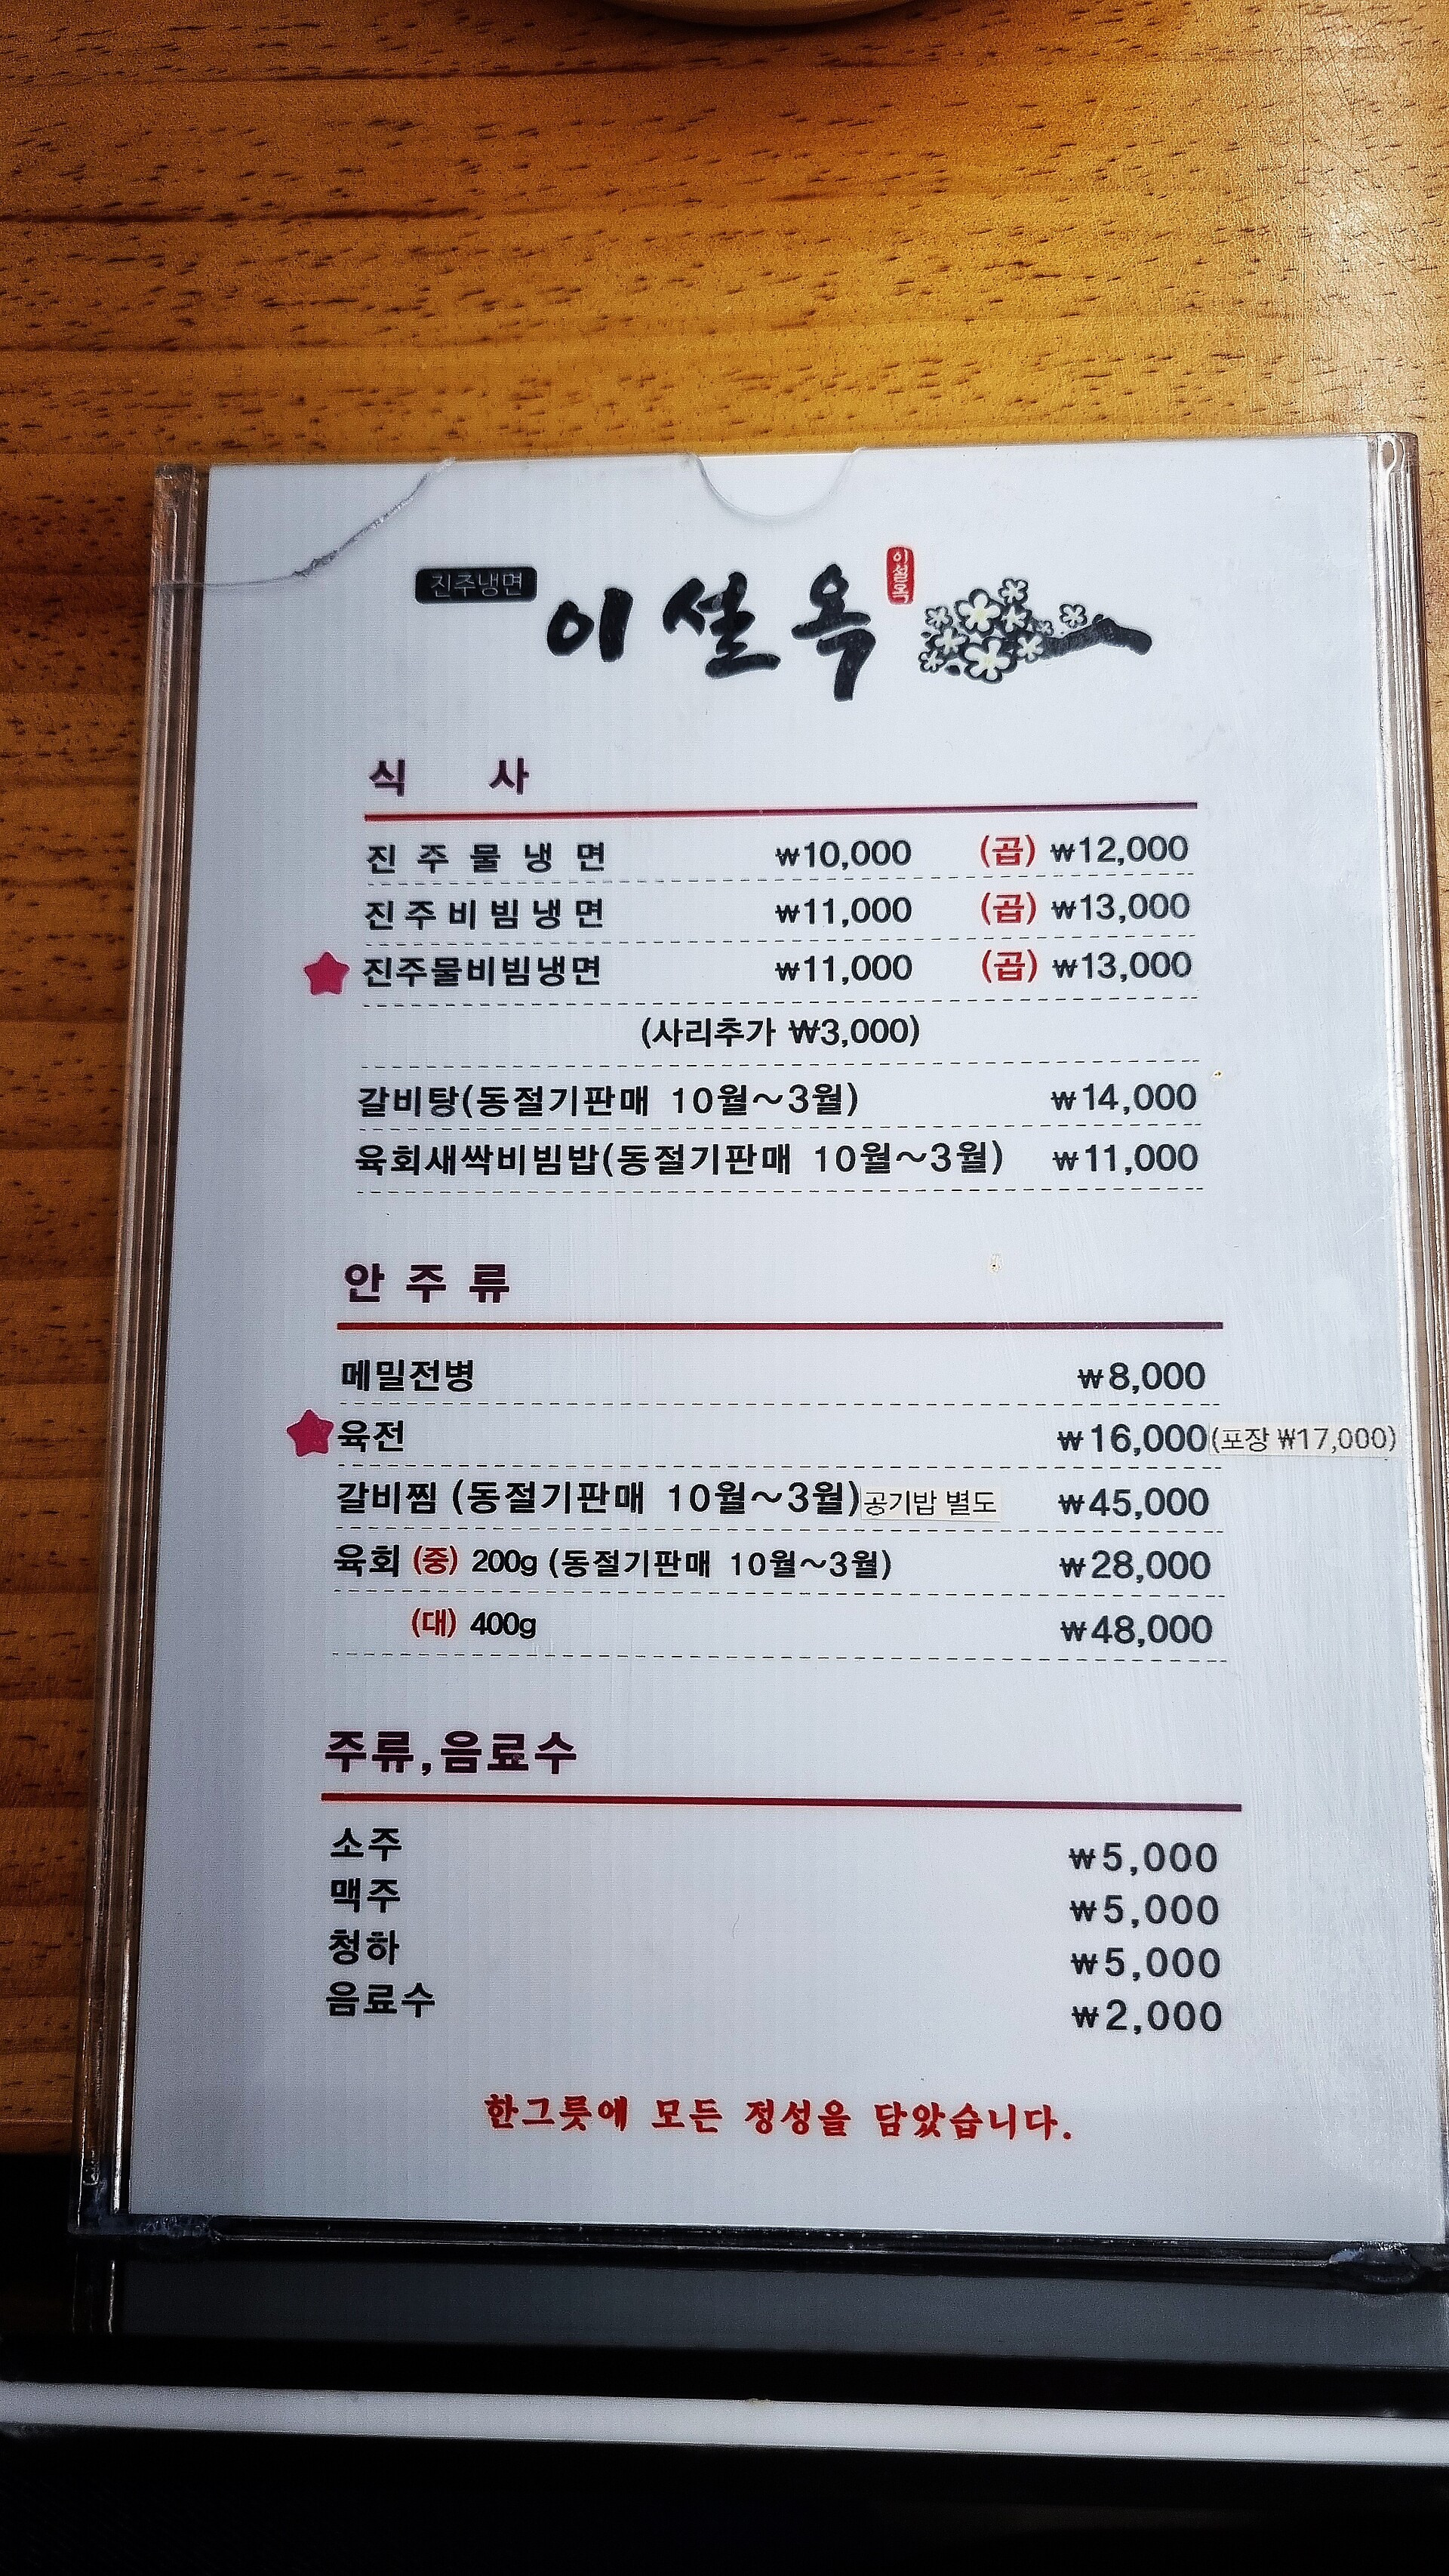 진주냉면 이설옥 이설옥
식 사
진주물냉면 ₩10,000 (곱) ₩12,000
진주비빔냉면 ₩11,000 (곱) ₩13,000
진주물비빔냉면 ₩11,000 (곱) ₩13,000
(사리추가 ₩3,000)
갈비탕(동절기판매 10월~3월) ₩14,000
육회새싹비빔밥(동절기판매 10월~3월) ₩11,000
안 주 류
메밀전병 ₩8,000
육전 ₩16,000(포장 ₩17,000)
갈비찜 (동절기판매 10월~3월)공기밥 별도 ₩45,000
육회 (중) 200g (동절기판매 10월~3월) ₩28,000
(대) 400g ₩48,000
주류,음료수
소주 ₩5,000
맥주 ₩5,000
청하 ₩5,000
음료수 ₩2,000
한그릇에 모든 정성을 담았습니다.